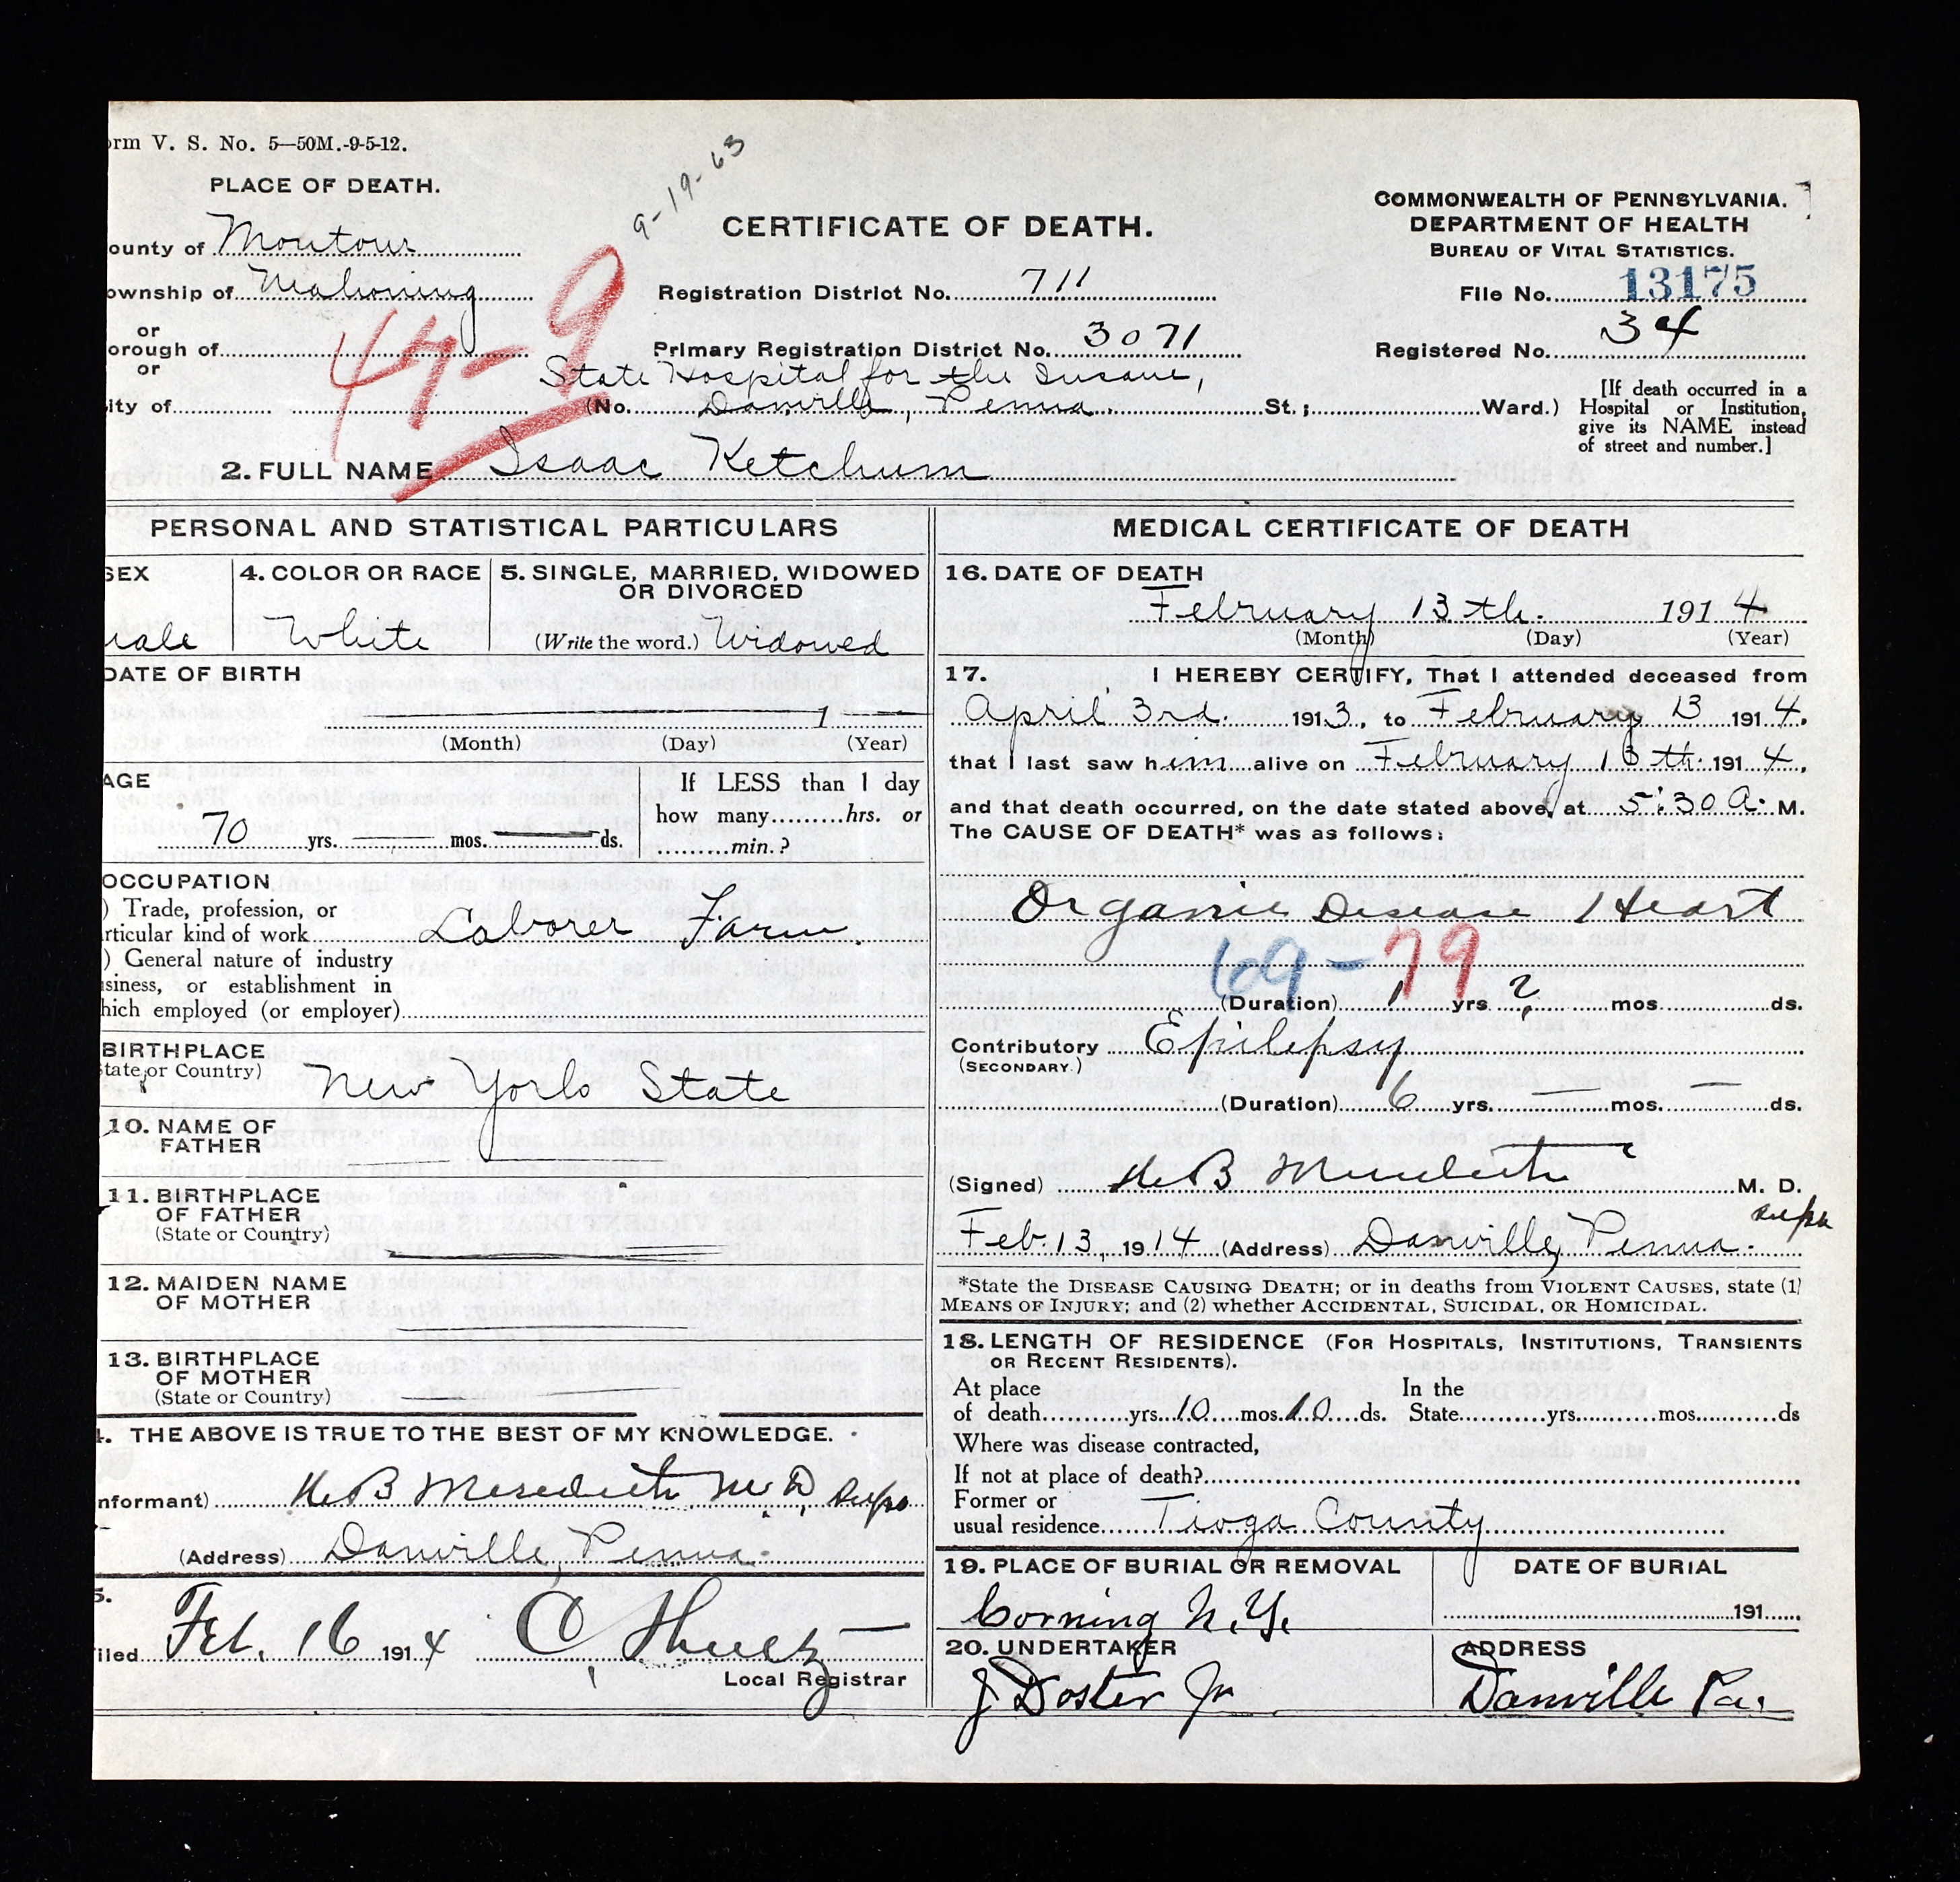 orm V. S. No. 5—50M.-9-5-12.
9-19-63
PLACE OF DEATH.
ounty of Montour
ownship of Mahoning
or
orough of
or
ity of
47-9
CERTIFICATE OF DEATH.
Registration District No. 711
Primary Registration District No. 3071
State Hospital for the Insane,
(No. Danville, Penna. St.; Ward.)
COMMONWEALTH OF PENNSYLVANIA.
DEPARTMENT OF HEALTH
BUREAU OF VITAL STATISTICS.
File No. 13175
Registered No. 34
[If death occurred in a
Hospital or Institution,
give its NAME instead
of street and number.]
2. FULL NAME Isaac Ketchum
PERSONAL AND STATISTICAL PARTICULARS
SEX
male
4. COLOR OR RACE
White
5. SINGLE, MARRIED, WIDOWED
OR DIVORCED
(Write the word.) Widowed
DATE OF BIRTH
1
(Month) (Day) (Year)
AGE
70 yrs. mos. ds.
If LESS than 1 day
how many hrs. or
min.?
OCCUPATION
) Trade, profession, or
rticular kind of work Laborer Farm.
) General nature of industry
siness, or establishment in
hich employed (or employer)
BIRTHPLACE
State or Country) New York State
10. NAME OF
FATHER
11. BIRTHPLACE
OF FATHER
(State or Country)
12. MAIDEN NAME
OF MOTHER
13. BIRTHPLACE
OF MOTHER
(State or Country)
4. THE ABOVE IS TRUE TO THE BEST OF MY KNOWLEDGE.
nformant) H. B Meredith M.D, Supt
(Address) Danville, Penna.
5.
iled Feb. 16 1914
Local Registrar
MEDICAL CERTIFICATE OF DEATH
16. DATE OF DEATH
February 13th. 1914
(Month) (Day) (Year)
17. I HEREBY CERTIFY, That I attended deceased from
April 3rd. 1913, to February 13 1914,
that I last saw him alive on February 13th. 1914,
and that death occurred, on the date stated above, at 5:30 A. M.
The CAUSE OF DEATH* was as follows:
Organic Disease Heart
69-79
(Duration) 1 yrs. ? mos. ds.
Contributory Epilepsy
(SECONDARY.)
(Duration) 6 yrs. mos. ds.
(Signed) H. B Meredith M. D.
Supt
Feb. 13, 1914 (Address) Danville, Penna.
*State the DISEASE CAUSING DEATH; or in deaths from VIOLENT CAUSES, state (1)
MEANS OF INJURY; and (2) whether ACCIDENTAL, SUICIDAL, OR HOMICIDAL.
18. LENGTH OF RESIDENCE (FOR HOSPITALS, INSTITUTIONS, TRANSIENTS
OR RECENT RESIDENTS).
At place In the
of death yrs. 10 mos. 10 ds. State yrs. mos. ds
Where was disease contracted,
If not at place of death?
Former or
usual residence Tioga County
19. PLACE OF BURIAL OR REMOVAL
Corning N.Y.
DATE OF BURIAL
191
20. UNDERTAKER
J Doster Jr
ADDRESS
Danville Pa.